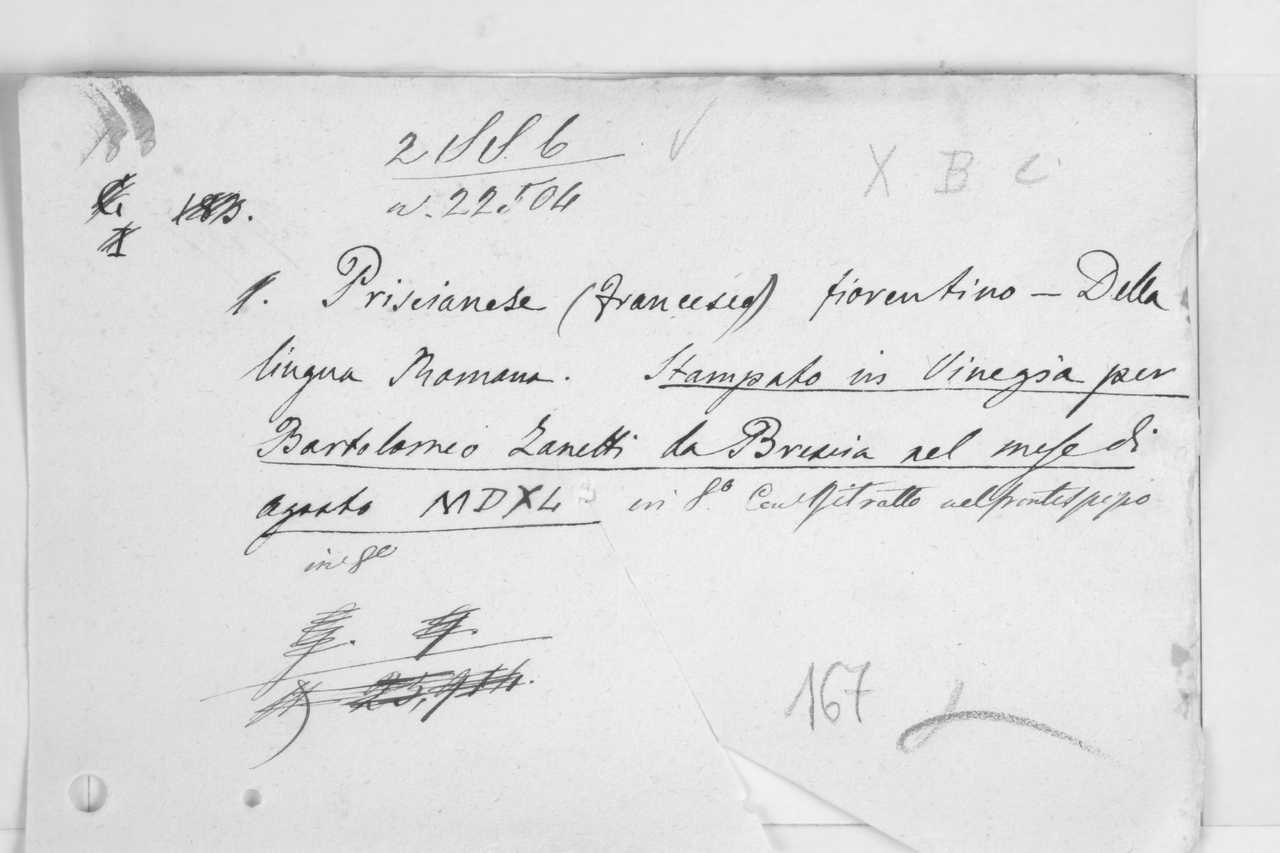 2 SS. 6
n. 22504
X B C
183.
1. Priscianese (Francesco) fiorentino — Della
lingua Romana. Stampato in Vinegia per
Bartolomeo Zanetti da Brescia nel mese di
agosto MDXL in 8.º Con Ritratto nel frontespizio
in 8º
25,914.
167